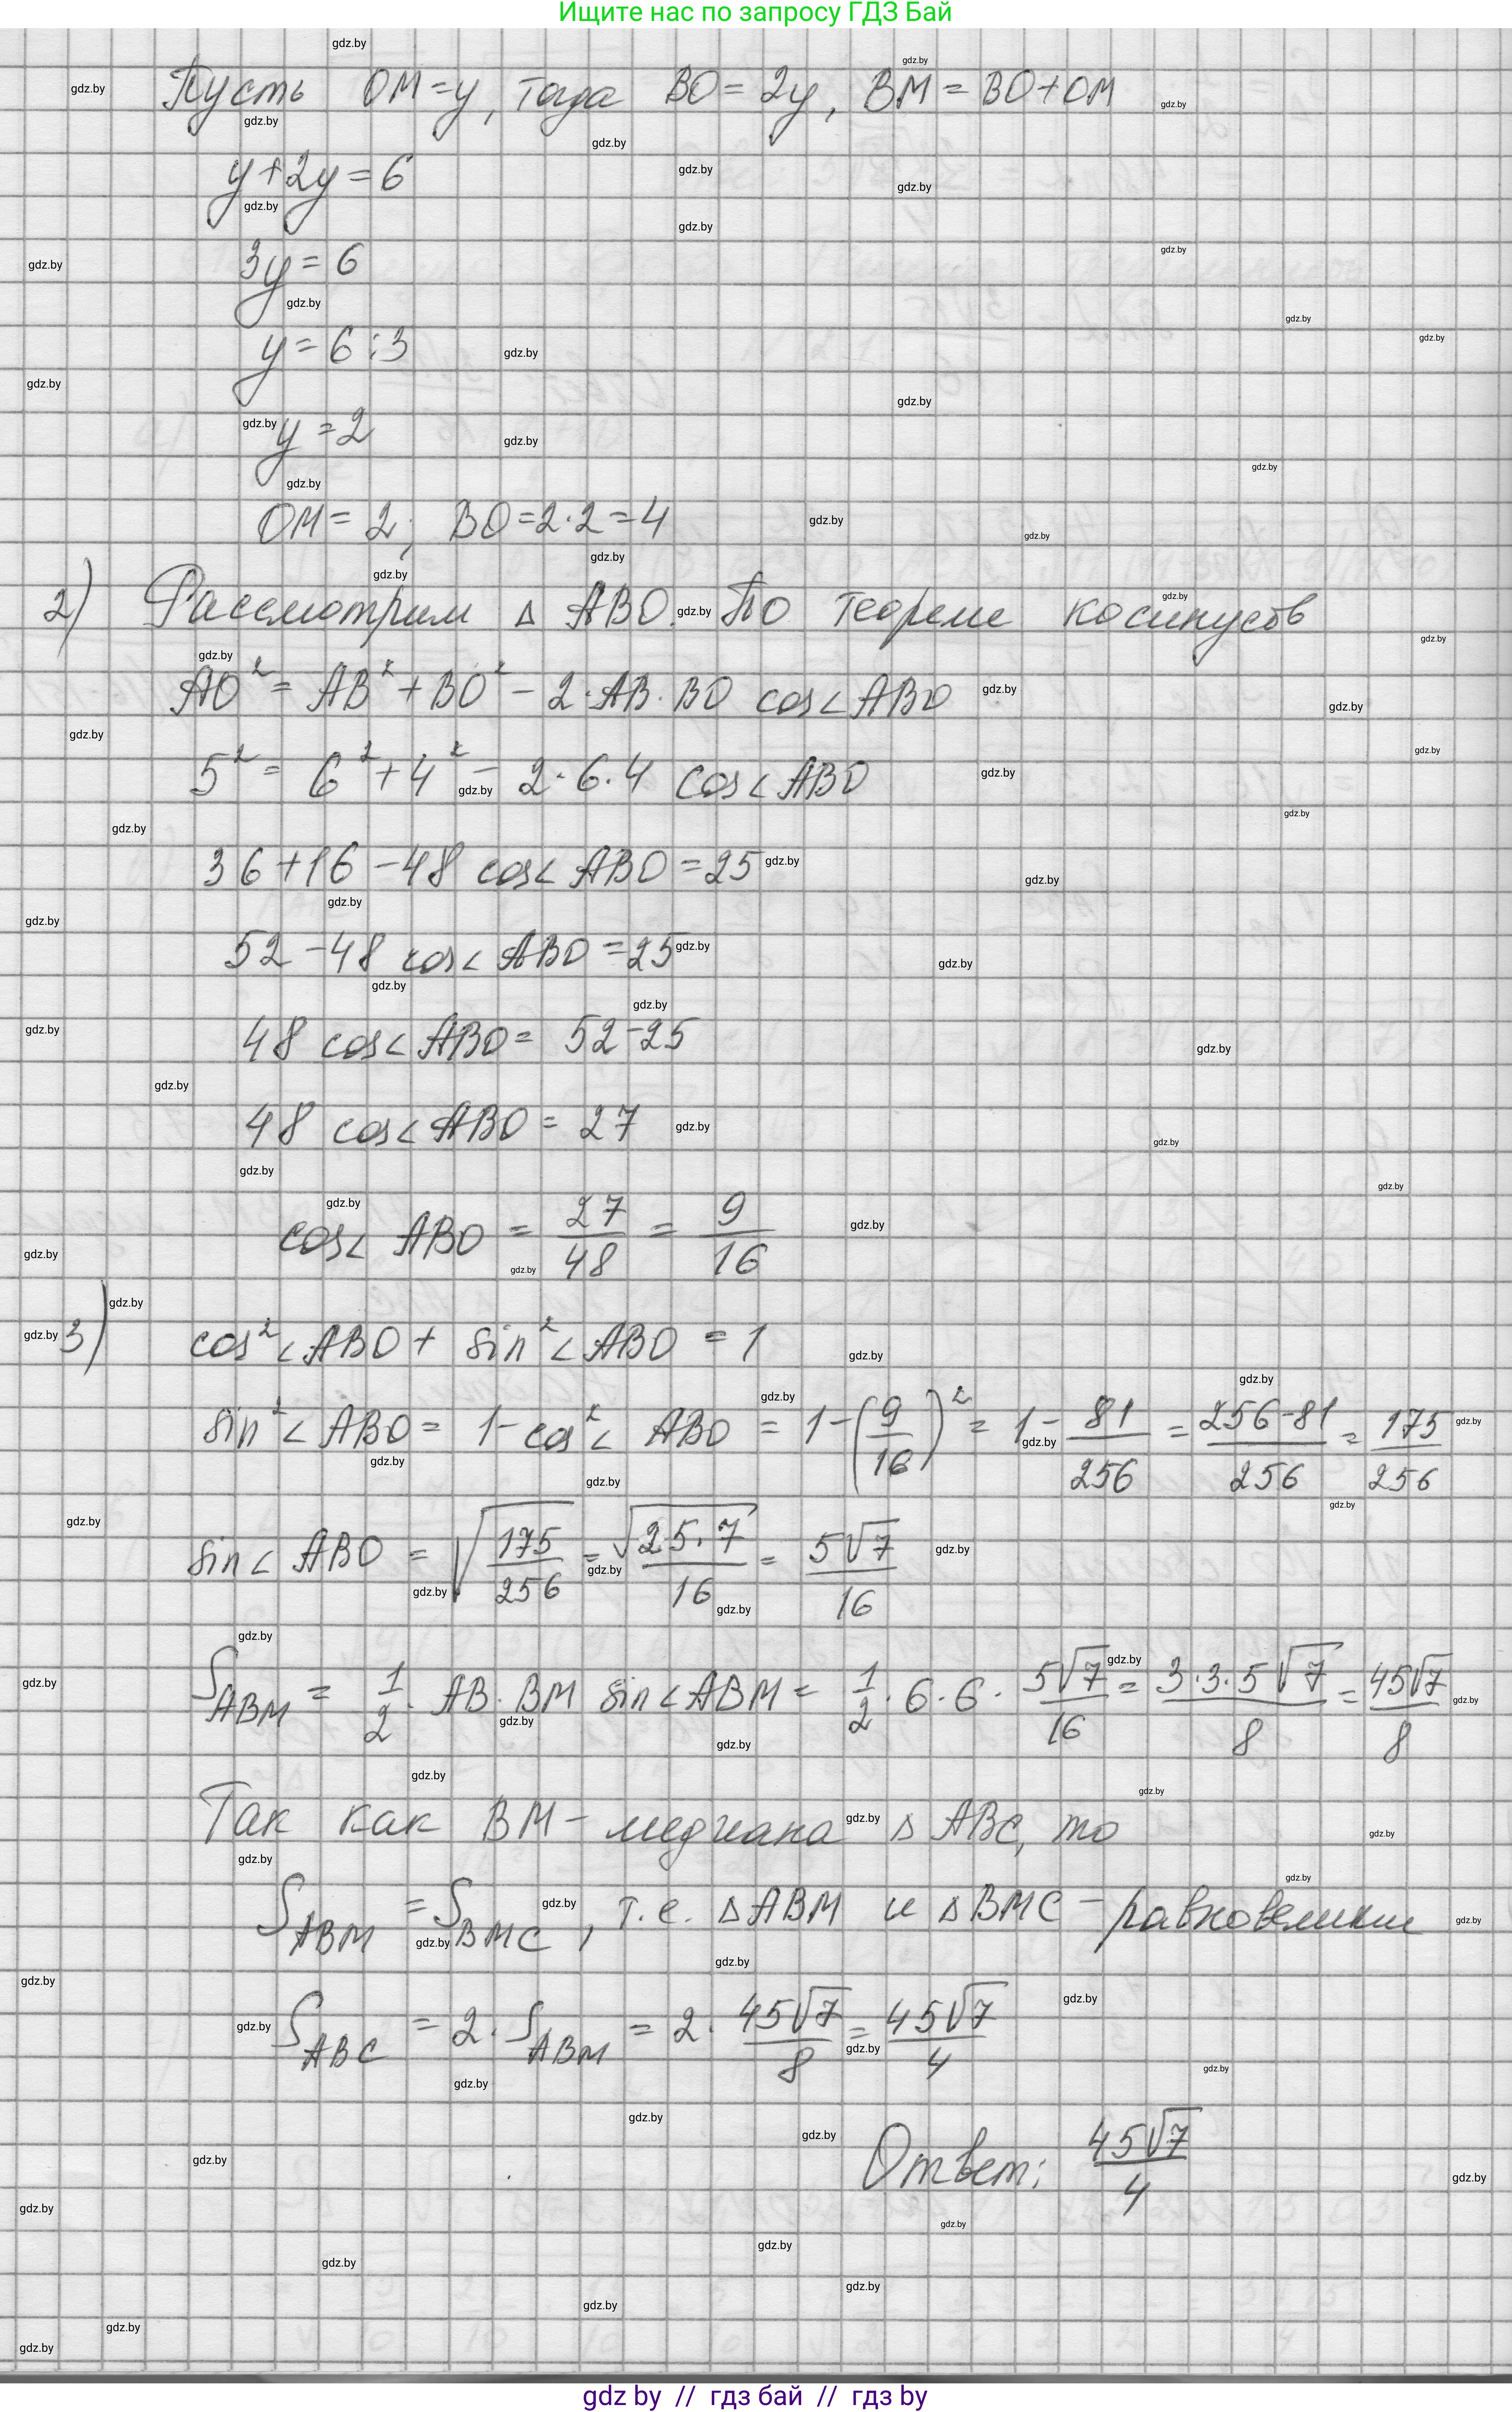 Ищите нас по запросу ГДЗ Бай
Пусть OM = y, тогда BO = 2y, BM = BO + OM
y + 2y = 6
3y = 6
y = 6 : 3
y = 2
OM = 2; BO = 2·2 = 4
2) Рассмотрим Δ ABO. По теореме косинусов
AO² = AB² + BO² - 2·AB·BO cos∠ABO
5² = 6² + 4² - 2·6·4 cos∠ABO
36 + 16 - 48 cos∠ABO = 25
52 - 48 cos∠ABO = 25
48 cos∠ABO = 52 - 25
48 cos∠ABO = 27
cos∠ABO = 27/48 = 9/16
3) cos²∠ABO + sin²∠ABO = 1
sin²∠ABO = 1 - cos²∠ABO = 1 - (9/16)² = 1 - 81/256 = (256-81)/256 = 175/256
sin∠ABO = √(175/256) = √(25·7)/16 = 5√7/16
S_ABM = 1/2 · AB · BM sin∠ABM = 1/2 · 6 · 6 · 5√7/16 = 3·3·5√7/8 = 45√7/8
Так как BM - медиана Δ ABC, то
S_ABM = S_BMC, т.е. Δ ABM и Δ BMC - равновелики
S_ABC = 2 · S_ABM = 2 · 45√7/8 = 45√7/4
Ответ: 45√7/4
gdz by // гдз бай // гдз by